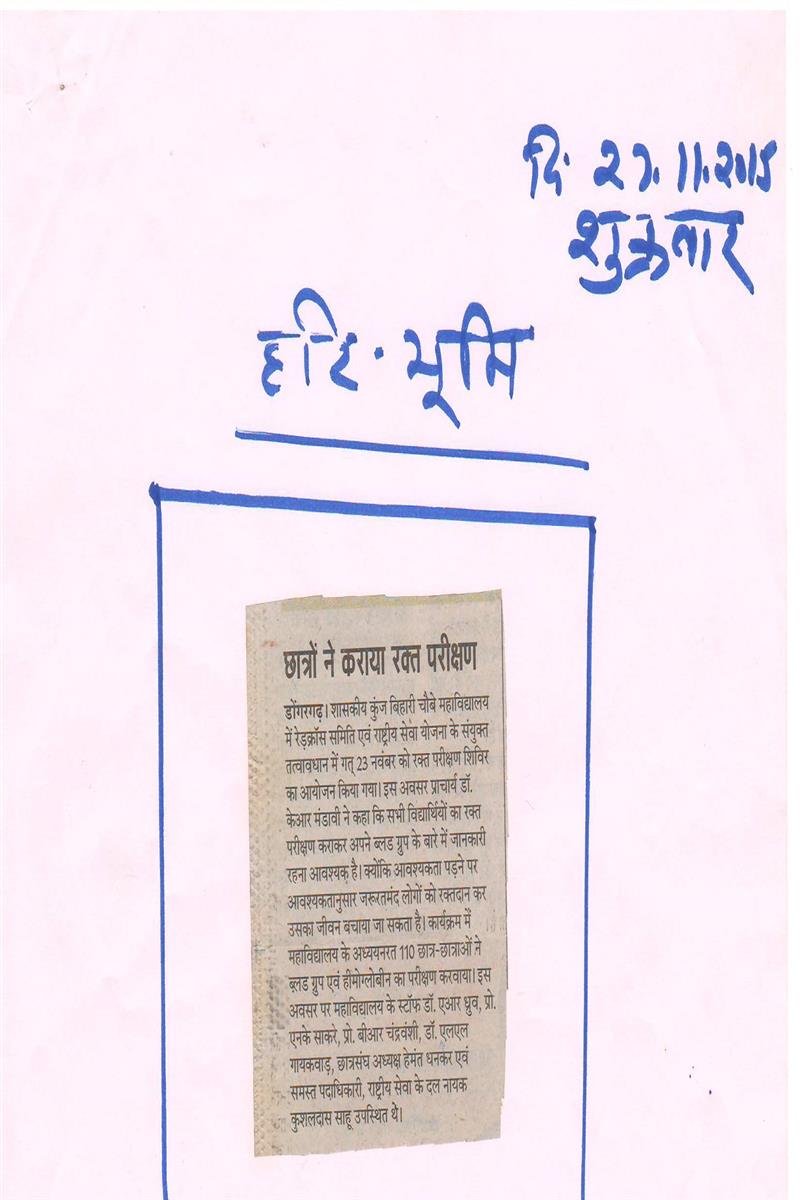 दि. 27.11.2015
शुक्रवार
हरि-भूमि
छात्रों ने कराया रक्त परीक्षण
डोंगरगढ़। शासकीय कुंज बिहारी चौबे महाविद्यालय
में रेडक्रॉस समिति एवं राष्ट्रीय सेवा योजना के संयुक्त
तत्वावधान में गत् 23 नवंबर को रक्त परीक्षण शिविर
का आयोजन किया गया। इस अवसर प्राचार्य डॉ.
केआर मंडावी ने कहा कि सभी विद्यार्थियों का रक्त
परीक्षण कराकर अपने ब्लड ग्रुप के बारे में जानकारी
रहना आवश्यक है। क्योंकि आवश्यकता पड़ने पर
आवश्यकतानुसार जरूरतमंद लोगों को रक्तदान कर
उसका जीवन बचाया जा सकता है। कार्यक्रम में
महाविद्यालय के अध्ययनरत 110 छात्र-छात्राओं ने
ब्लड ग्रुप एवं हीमोग्लोबीन का परीक्षण करवाया। इस
अवसर पर महाविद्यालय के स्टॉफ डॉ. एआर ध्रुव, प्रो.
एनके साकरे, प्रो. बीआर चंद्रवंशी, डॉ. एलएल
गायकवाड़, छात्रसंघ अध्यक्ष हेमंत धनकर एवं
समस्त पदाधिकारी, राष्ट्रीय सेवा के दल नायक
कुशलदास साहू उपस्थित थे।